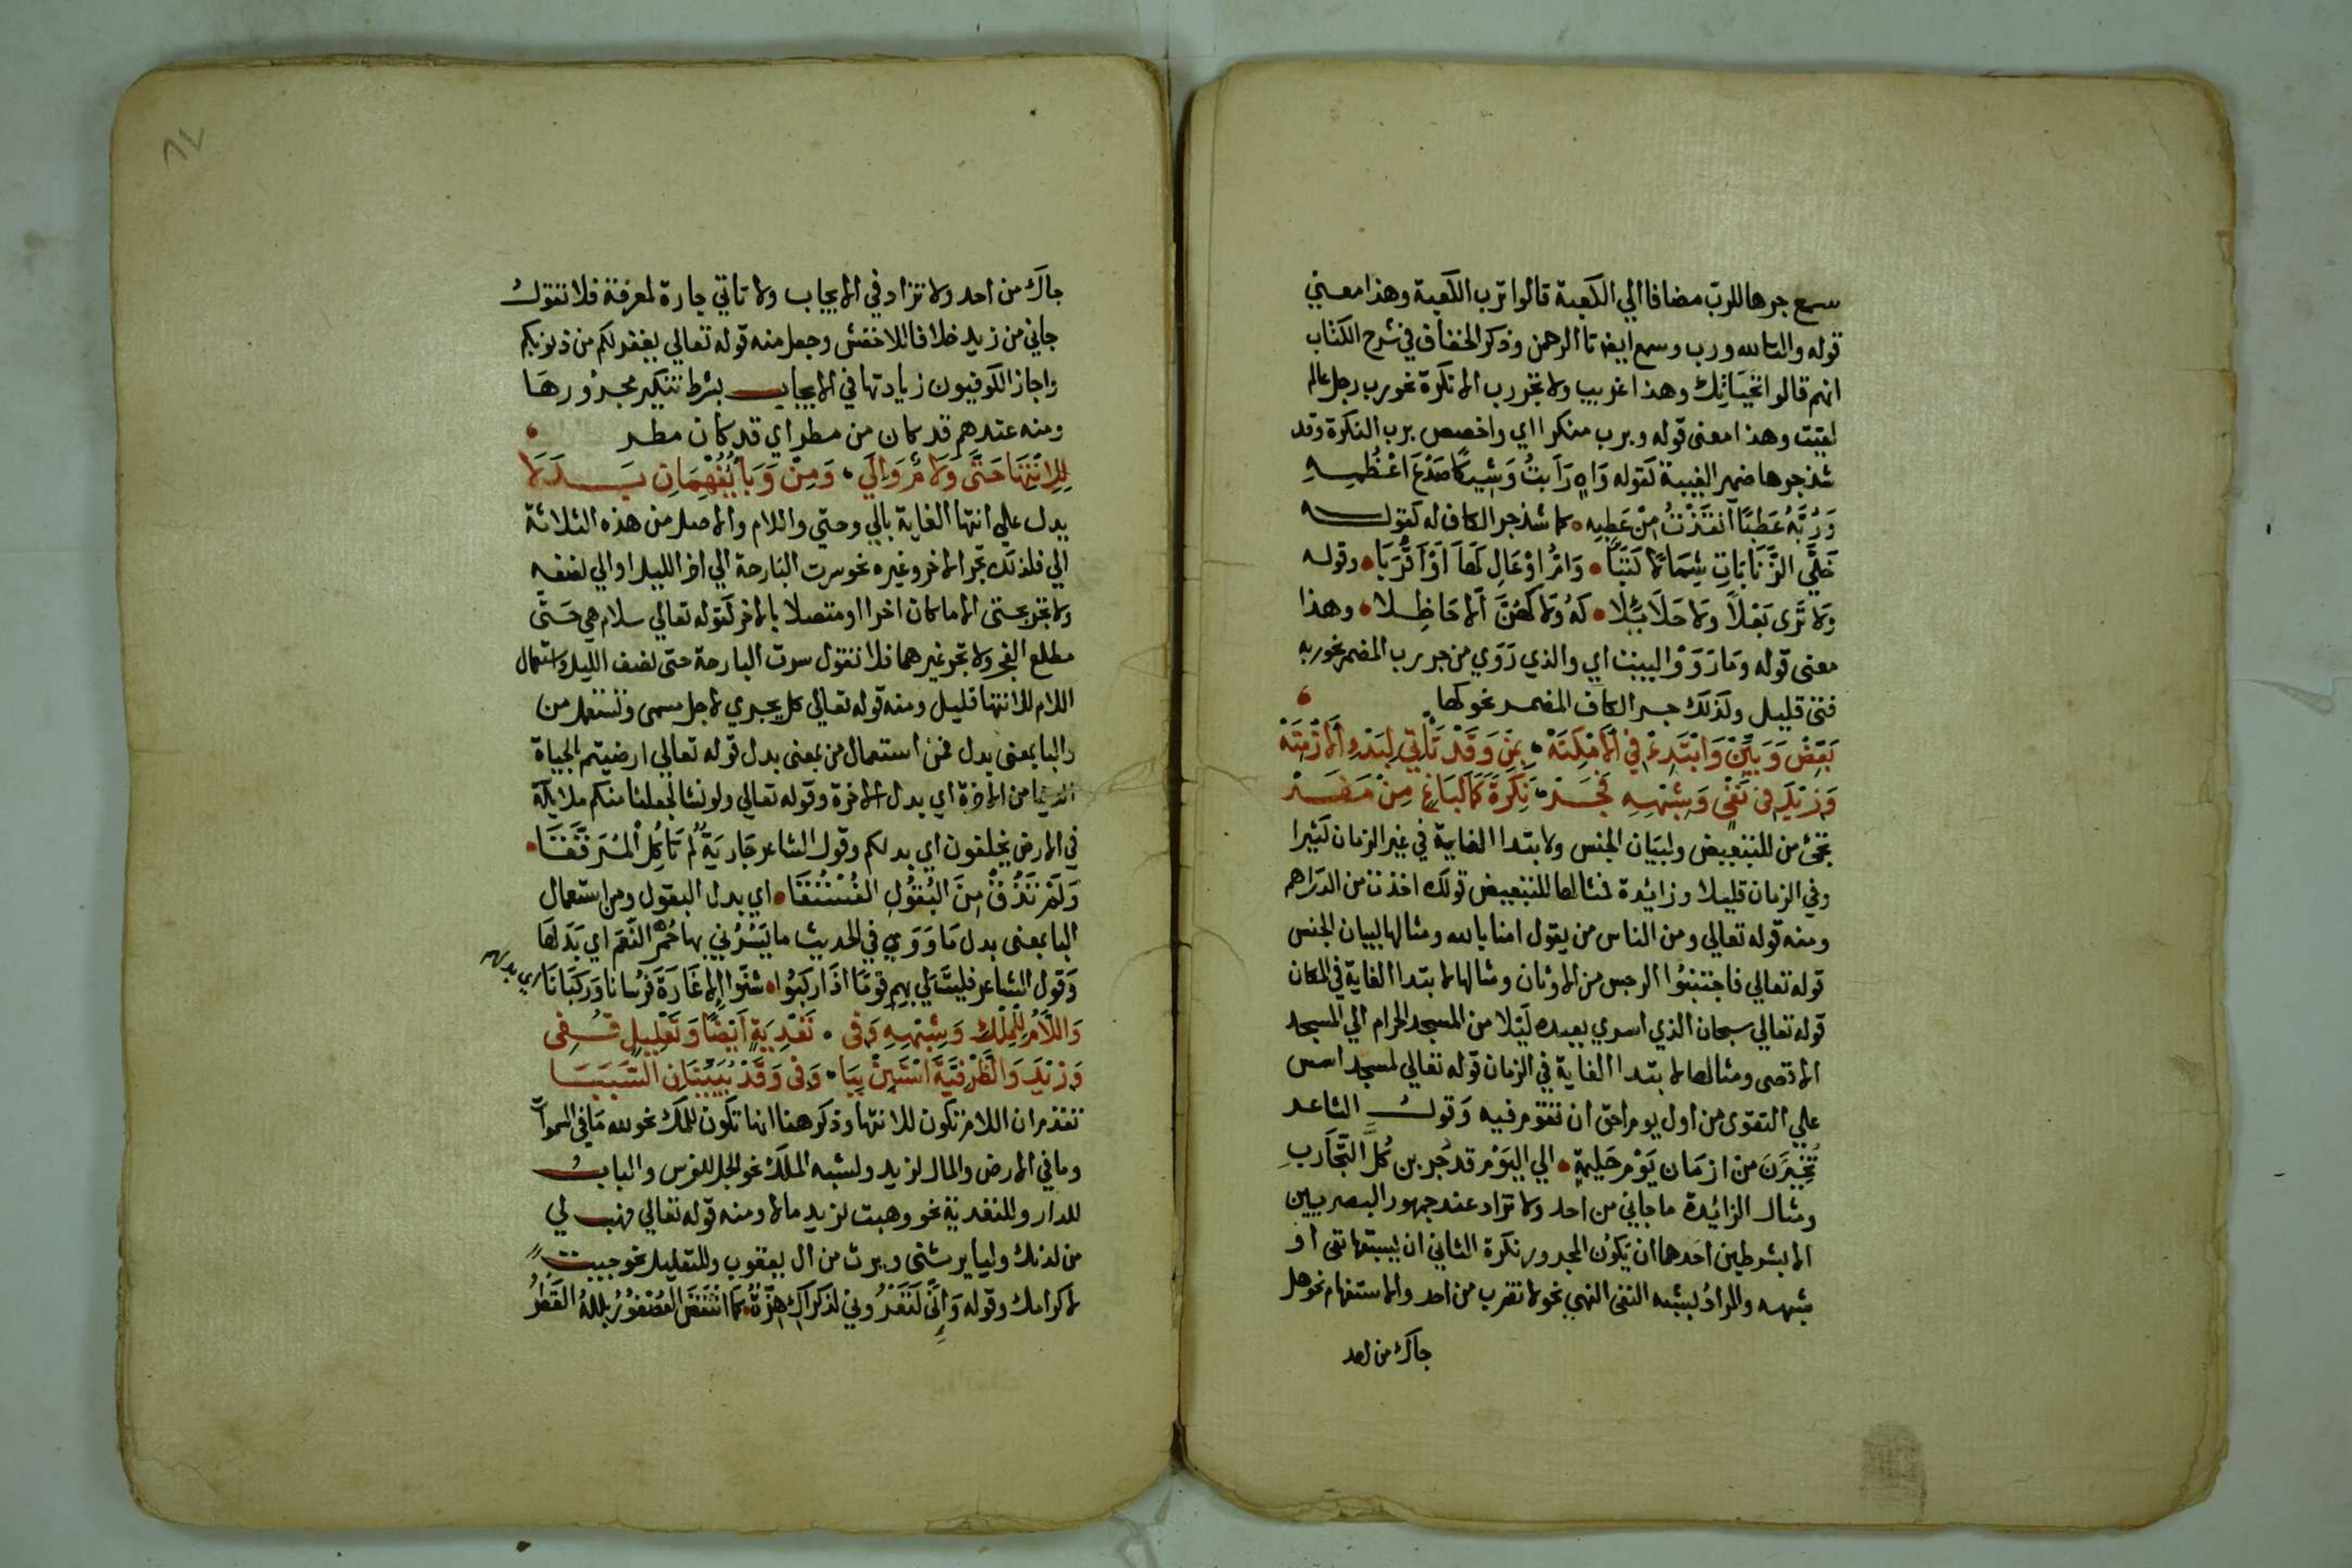 سمع جرها للرب مضافا الي الكعبة قالوا ترب الكعبة وهذا معني
قوله والتا لله ورب وسمع ايضا تا الرحمن وذكر الخفاف في شرح الكتاب
انهم قالوا تحياتك وهذا غريب ولا تجر رب الا نكرة نحو رب رجل عالم
لقيت وهذا معنى قوله وبرب منكرا اي واخصص برب النكرة وقد
شذ جرها ضمير الغيبة كقوله وَاهٍ رَاَبتُ وَشِيكًا صَدْعَ اعْظُمِهِ
وَرُبَّهُ عَطِبًا انقَذْتُ مِنْ عَطِبِه كما شذ جر الكاف له كقوله
خَلَّى الذَّنَابَاتِ شِمَالًا كَثَبَا وَامَّ اوْعَالٍ كَهَا اَوْ اَقْرَبَا وقوله
وَلا تَرى بَعْلاً ولا حَلَائِلًا كَهُ وَلا كَهُنَّ اَلا حَاظِلا وهذا
معنى قوله وَمَا رَوَوْا البيت اي والذي رَوَوي من جر رب المضمر نحو ربه
فتى قليل ولذلك جر الكاف المضمر نحو كها
بَعِّضْ وَبَيِّنْ وَابْتَدِءْ فِي اَلامْكِنَهْ بِمِنْ وَقَدْ تَأْتِي لِبَدْءِ اَلازْمِنَهْ
وَزِيْدَ فى نَفْى وَشِبْهِهِ فَجَرْ نَكِرَةً كَمَا لِبَاغٍ مِنْ مَفَرْ
تجئ من للتبعيض ولبيان الجنس ولابتدا الغاية في غير الزمان كثيرا
وفي الزمان قليلا وزائدة فمثالها للتبعيض قولك اخذت من الدراهم
ومنه قوله تعالي ومن الناس من يقول امنا بالله ومثالها لبيان الجنس
قوله تعالي فاجتنبُوا الرجس من الاوثان ومثالها لابتدا الغاية في المكان
قوله تعالي سبحان الذي اسري بعبده لَيْلا من المسجد الحرام الي المسجد
الاقصى ومثالها لابتدا الغاية في الزمان قوله تعالي لمسجد اسس
علي التقوى من اول يوم احق ان تقوم فيه وَقول الشاعر
تُخُيِّرْنَ من ازمَان يَوْمِ حَلِيمَةٍ الي اليَوْم قد جُربن كُلَّ التَّجَاربِ
ومثال الزائدة ما جاني من احد ولا تزاد عند جمهور البصريين
الا بشرطين احدهما ان يكون المجرور نكرة الثاني ان يسبقها نفى او
شبهه والمرادُ بشبه النفى النهي نحو لا تضرب من احد والاستفهام نحو هل
جاك من احد
جاك من احد ولا تزاد في الايجاب ولا تاتي جارة لمعرفة فلا تقول
جاني من زيد خلافا للاخفش وجعل منه قوله تعالي يغفر لكم من ذنوبكم
واجاز الكوفيون زيادتها في الايجاب بشرط تنكير مجرورها
ومنه عندهم قد كان من مطر اي قد كان مطر
لِلِانْتِهَا حَتَّى وَلامٌ وَالِي وَمِنْ وَبَاٌ يُفْهِمَانِ بَدَلا
يدل علي انتها الغاية بالي وحتي واللام والاصل من هذه الثلاثة
الي فلذلك تجر الاخر وغيره نحو سرت البارحة الي اخر الليل او الي نصفه
ولا تجر حتى الا ما كان اخرا او متصلا بالاخر كقوله تعالي سلام هي حَتَّى
مطلع الفجر ولا تجر غيرهما فلا تقول سرت البارحة حتى نصف الليل واستعمال
اللام للانتها قليل ومنه قوله تعالي كل يجري لاجل مسمى وتستعمل من
والبا بمعنى بدل فمن استعمال من بمعنى بدل قوله تعالي ارضيتم بالحياة
الدنيا من الاخرة اي بدل الاخرة وقوله تعالي ولو نشا لجعلنا منكم ملايكة
في الارض يخلفون اي بدلكم وقول الشاعر جَاريَةٌ لم تَأكُلْ الْمُرَقَّقَا
وَلَمْ تَذُقْ مِنَ البُقُولِ الفُسْتُقَا اي بدل البقول ومن استعمال
البا بمعنى بدل مَا وَرَدِ في الحديث ما يَسُرُّنِي بها حُمْر النَّعَم اي بَدَلهَا
وَقول الشاعر فليت لِي بهم قومًا اذَا ركبُوا شنّوا الاغَارَةَ فرُسَانا وَركبَانَا اي بدلهم
وَاللَّامُ لِلْمِلْكِ وَشِبْهِهِ وَفى تَعْدِيَةٍ اَيْضًا وَتَعْلِيلٍ قُفِى
وَزِيْدَ وَالظَّرْفِيَّةَ اسْتَبِنْ بِبَا وَفى وَقَدْ يُبَيِّنَانِ السَّبَبَا
تقدم ان اللام تكون للانتها وذكر هنا انها تكون للملك نحو لله مَا في السموات
وما في الارض والمال لزيد ولشبه الملك نحو الجل للفرس والباب
للدار وللتعدية نحو وهبت لزيد مالا ومنه قوله تعالي فهب لي
من لدنك وليا يرثنى ويرث من ال يعقوب وللتعليل نحو جيت
لاكرامك وقوله وَاِنِّى لَتَعْرُوني لذكراكِ هزَّةٌ كما انتَفَضَ العُصْفُوُرُ بللهُ القَطْرُ